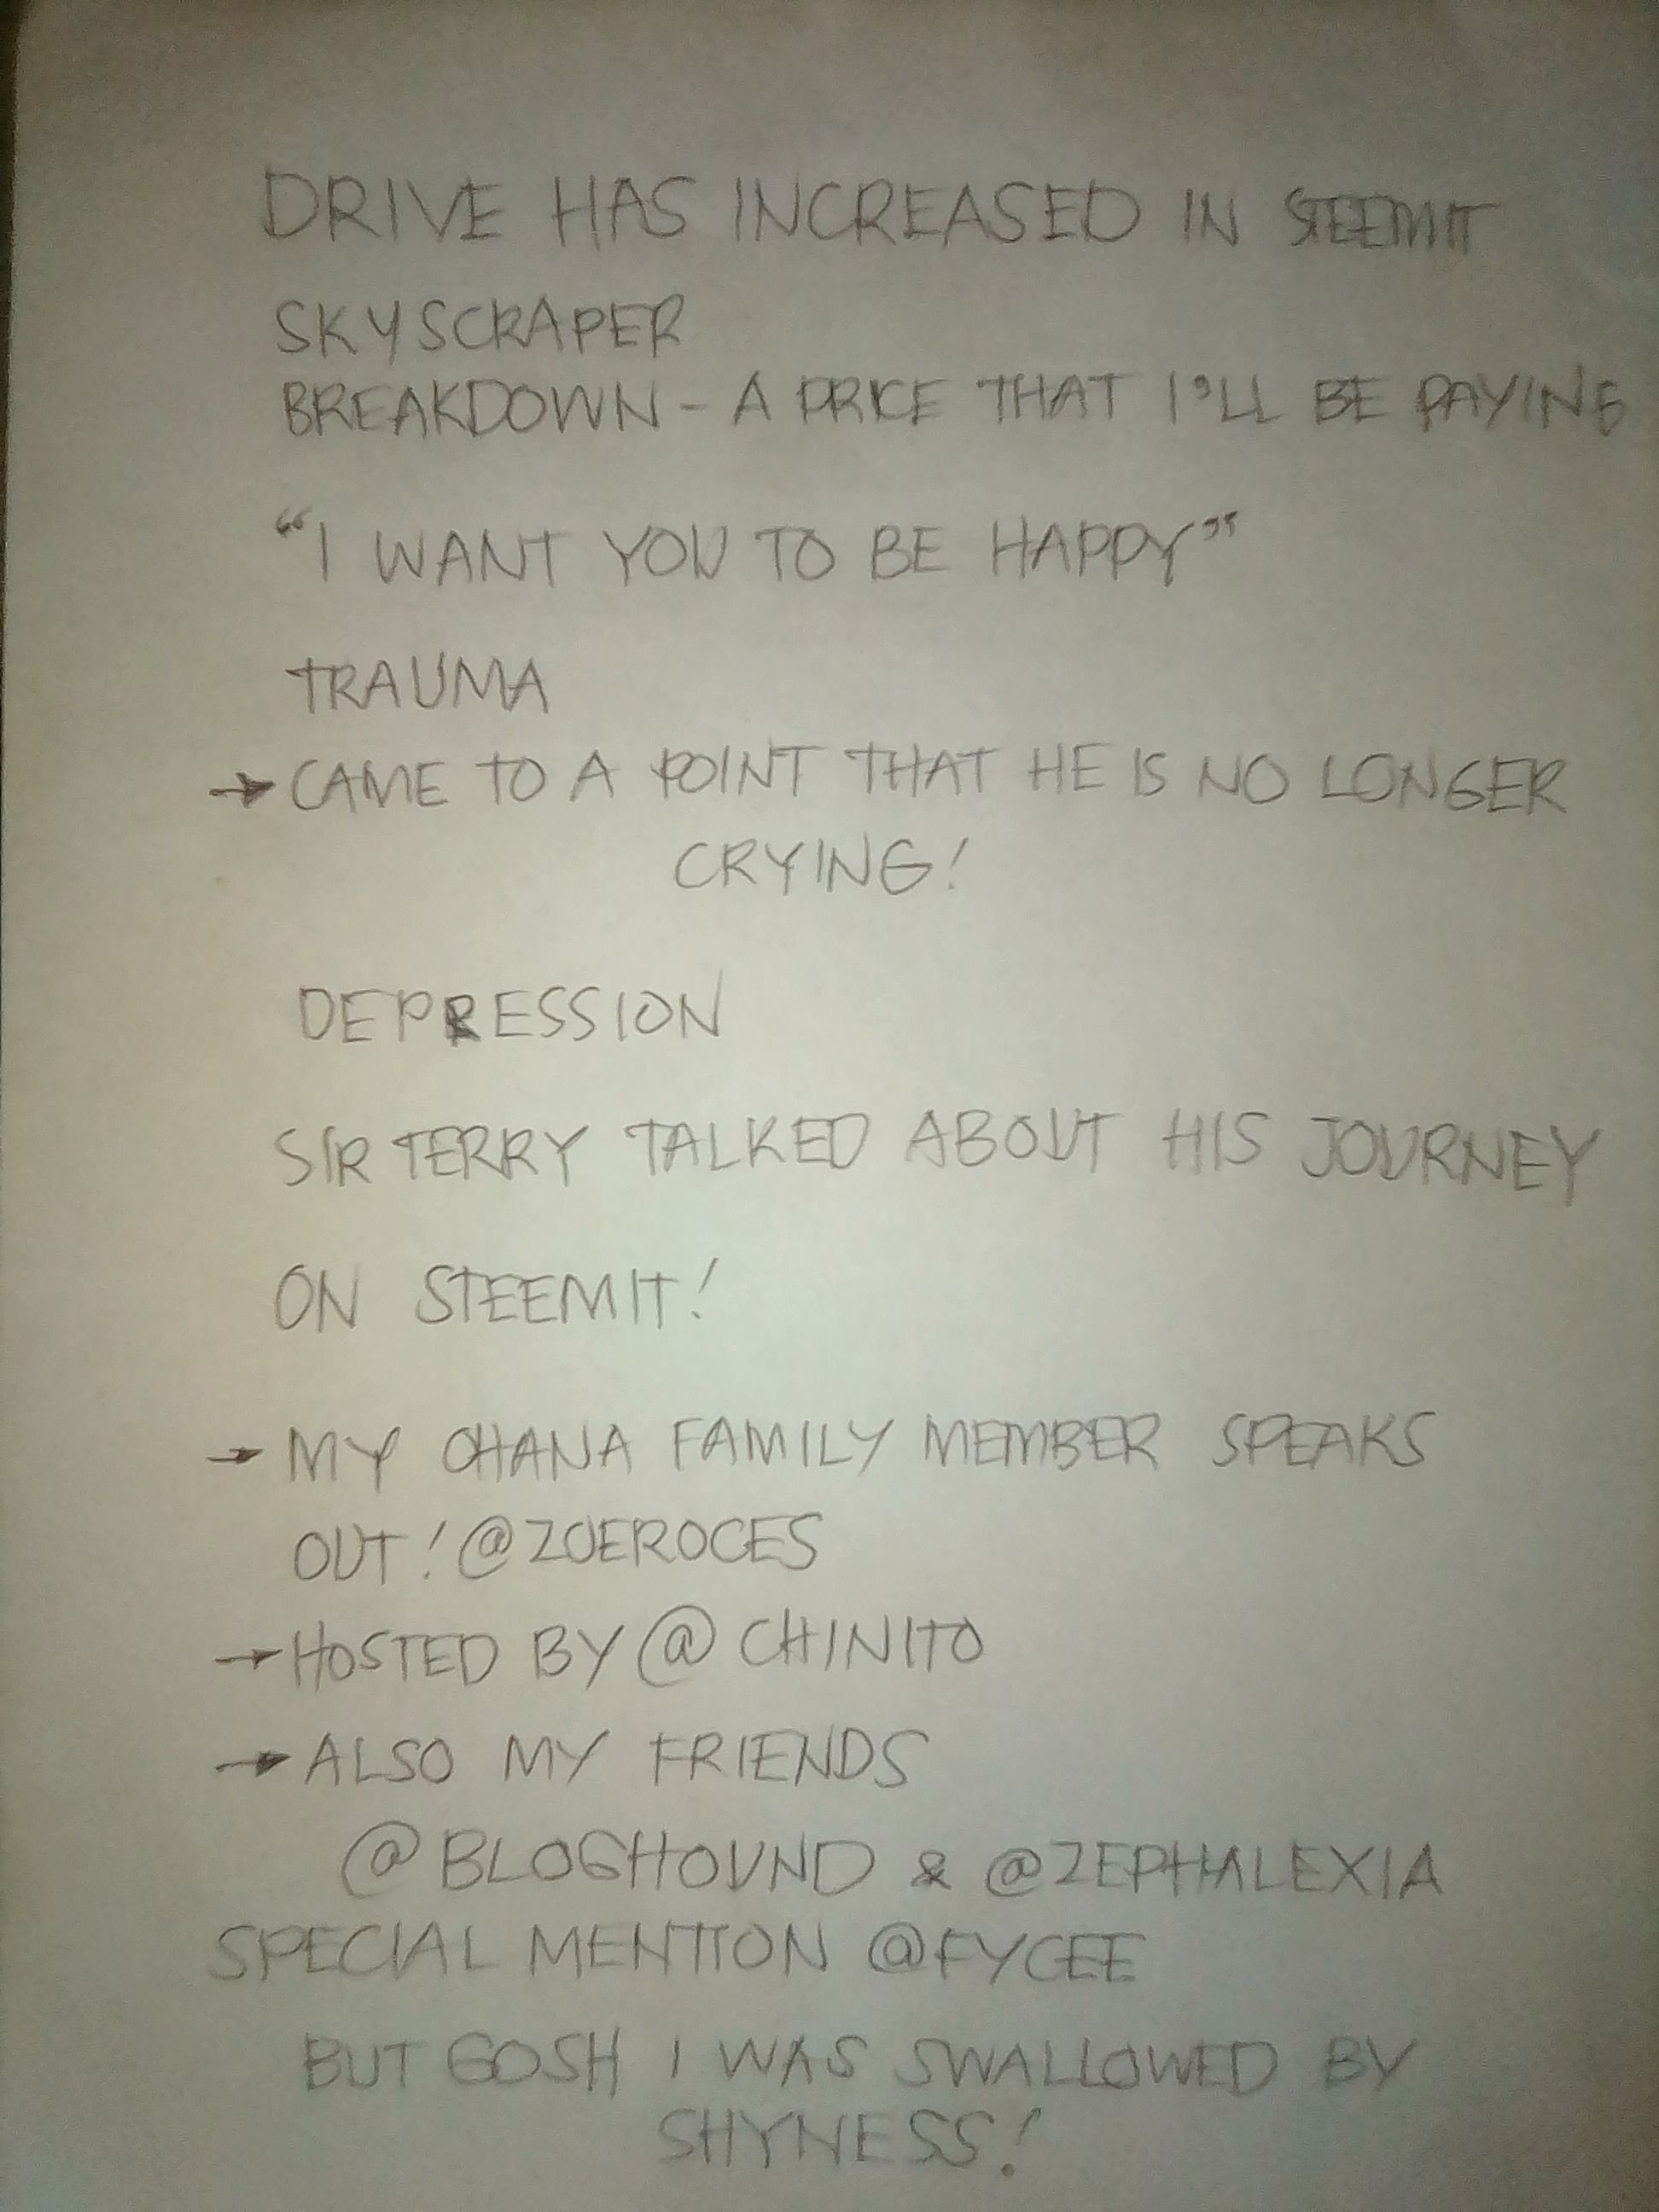 DRIVE HAS INCREASED IN STEEMIT
SKYSCRAPER
BREAKDOWN - A PRICE THAT I'LL BE PAYING
"I WANT YOU TO BE HAPPY"
TRAUMA
→ CAME TO A POINT THAT HE IS NO LONGER
CRYING!
DEPRESSION
SIR TERRY TALKED ABOUT HIS JOURNEY
ON STEEMIT!
→ MY OHANA FAMILY MEMBER SPEAKS
OUT! @ZOEROCES
→ HOSTED BY @CHINITO
→ ALSO MY FRIENDS
@BLOGHOUND & @ZEPHALEXIA
SPECIAL MENTION @FYCEE
BUT GOSH I WAS SWALLOWED BY
SHYNESS!